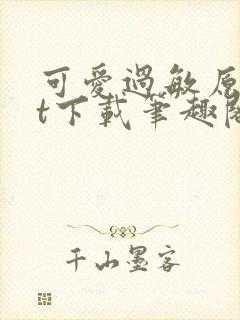 可愛過敏原
t下載筆趣閣
千山墨客